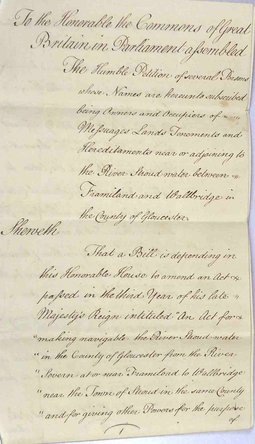 To the Honorable the Commons of Great
Britain in Parliament assembled
The Humble Petition of several Persons
whose Names are hereunto subscribed
being Owners and Occupiers of
Messuages Lands Tenements and
Hereditaments near or adjoining to
the River Stroud water between
Framiland and Wallbridge in
the County of Gloucester
Sheweth
That a Bill is depending in
this Honorable House to amend an Act
passed in the third Year of his late
Majesty's Reign intituled "An Act for
"making navigable the River Stroudwater
"in the County of Gloucester from the River
"Severn at or near Framiload to Wallbridge
"near the Town of Stroud in the same County
"and for giving other Powers for the purpose
of
1